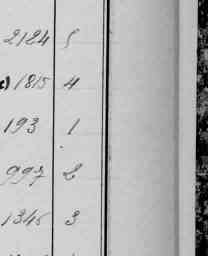 2124 5
c) 1815 4
193 1
997 2
1345 3